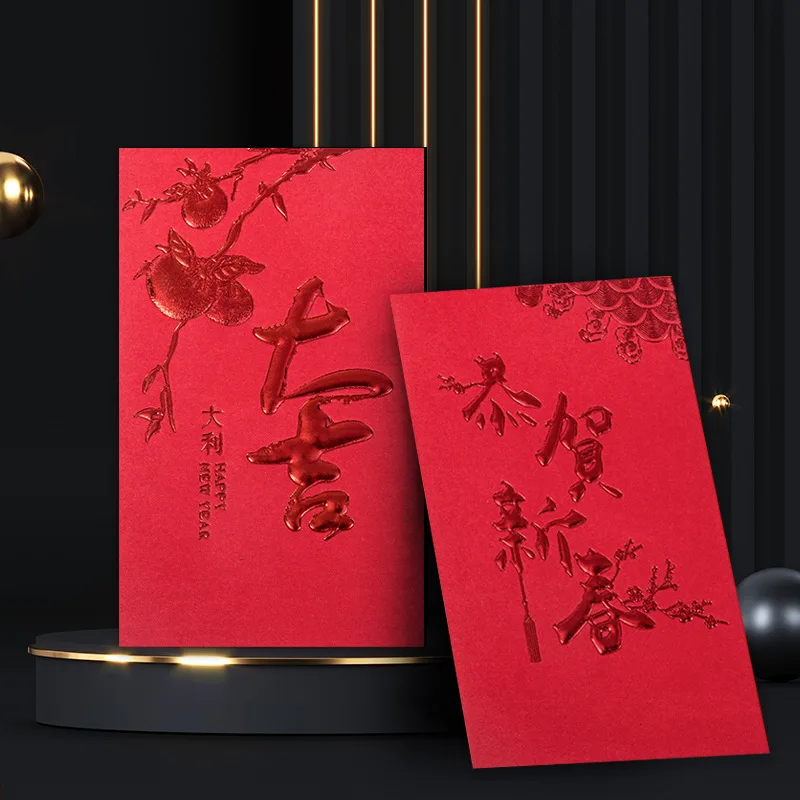 大吉
大利
HAPPY
NEW YEAR
恭賀
新春